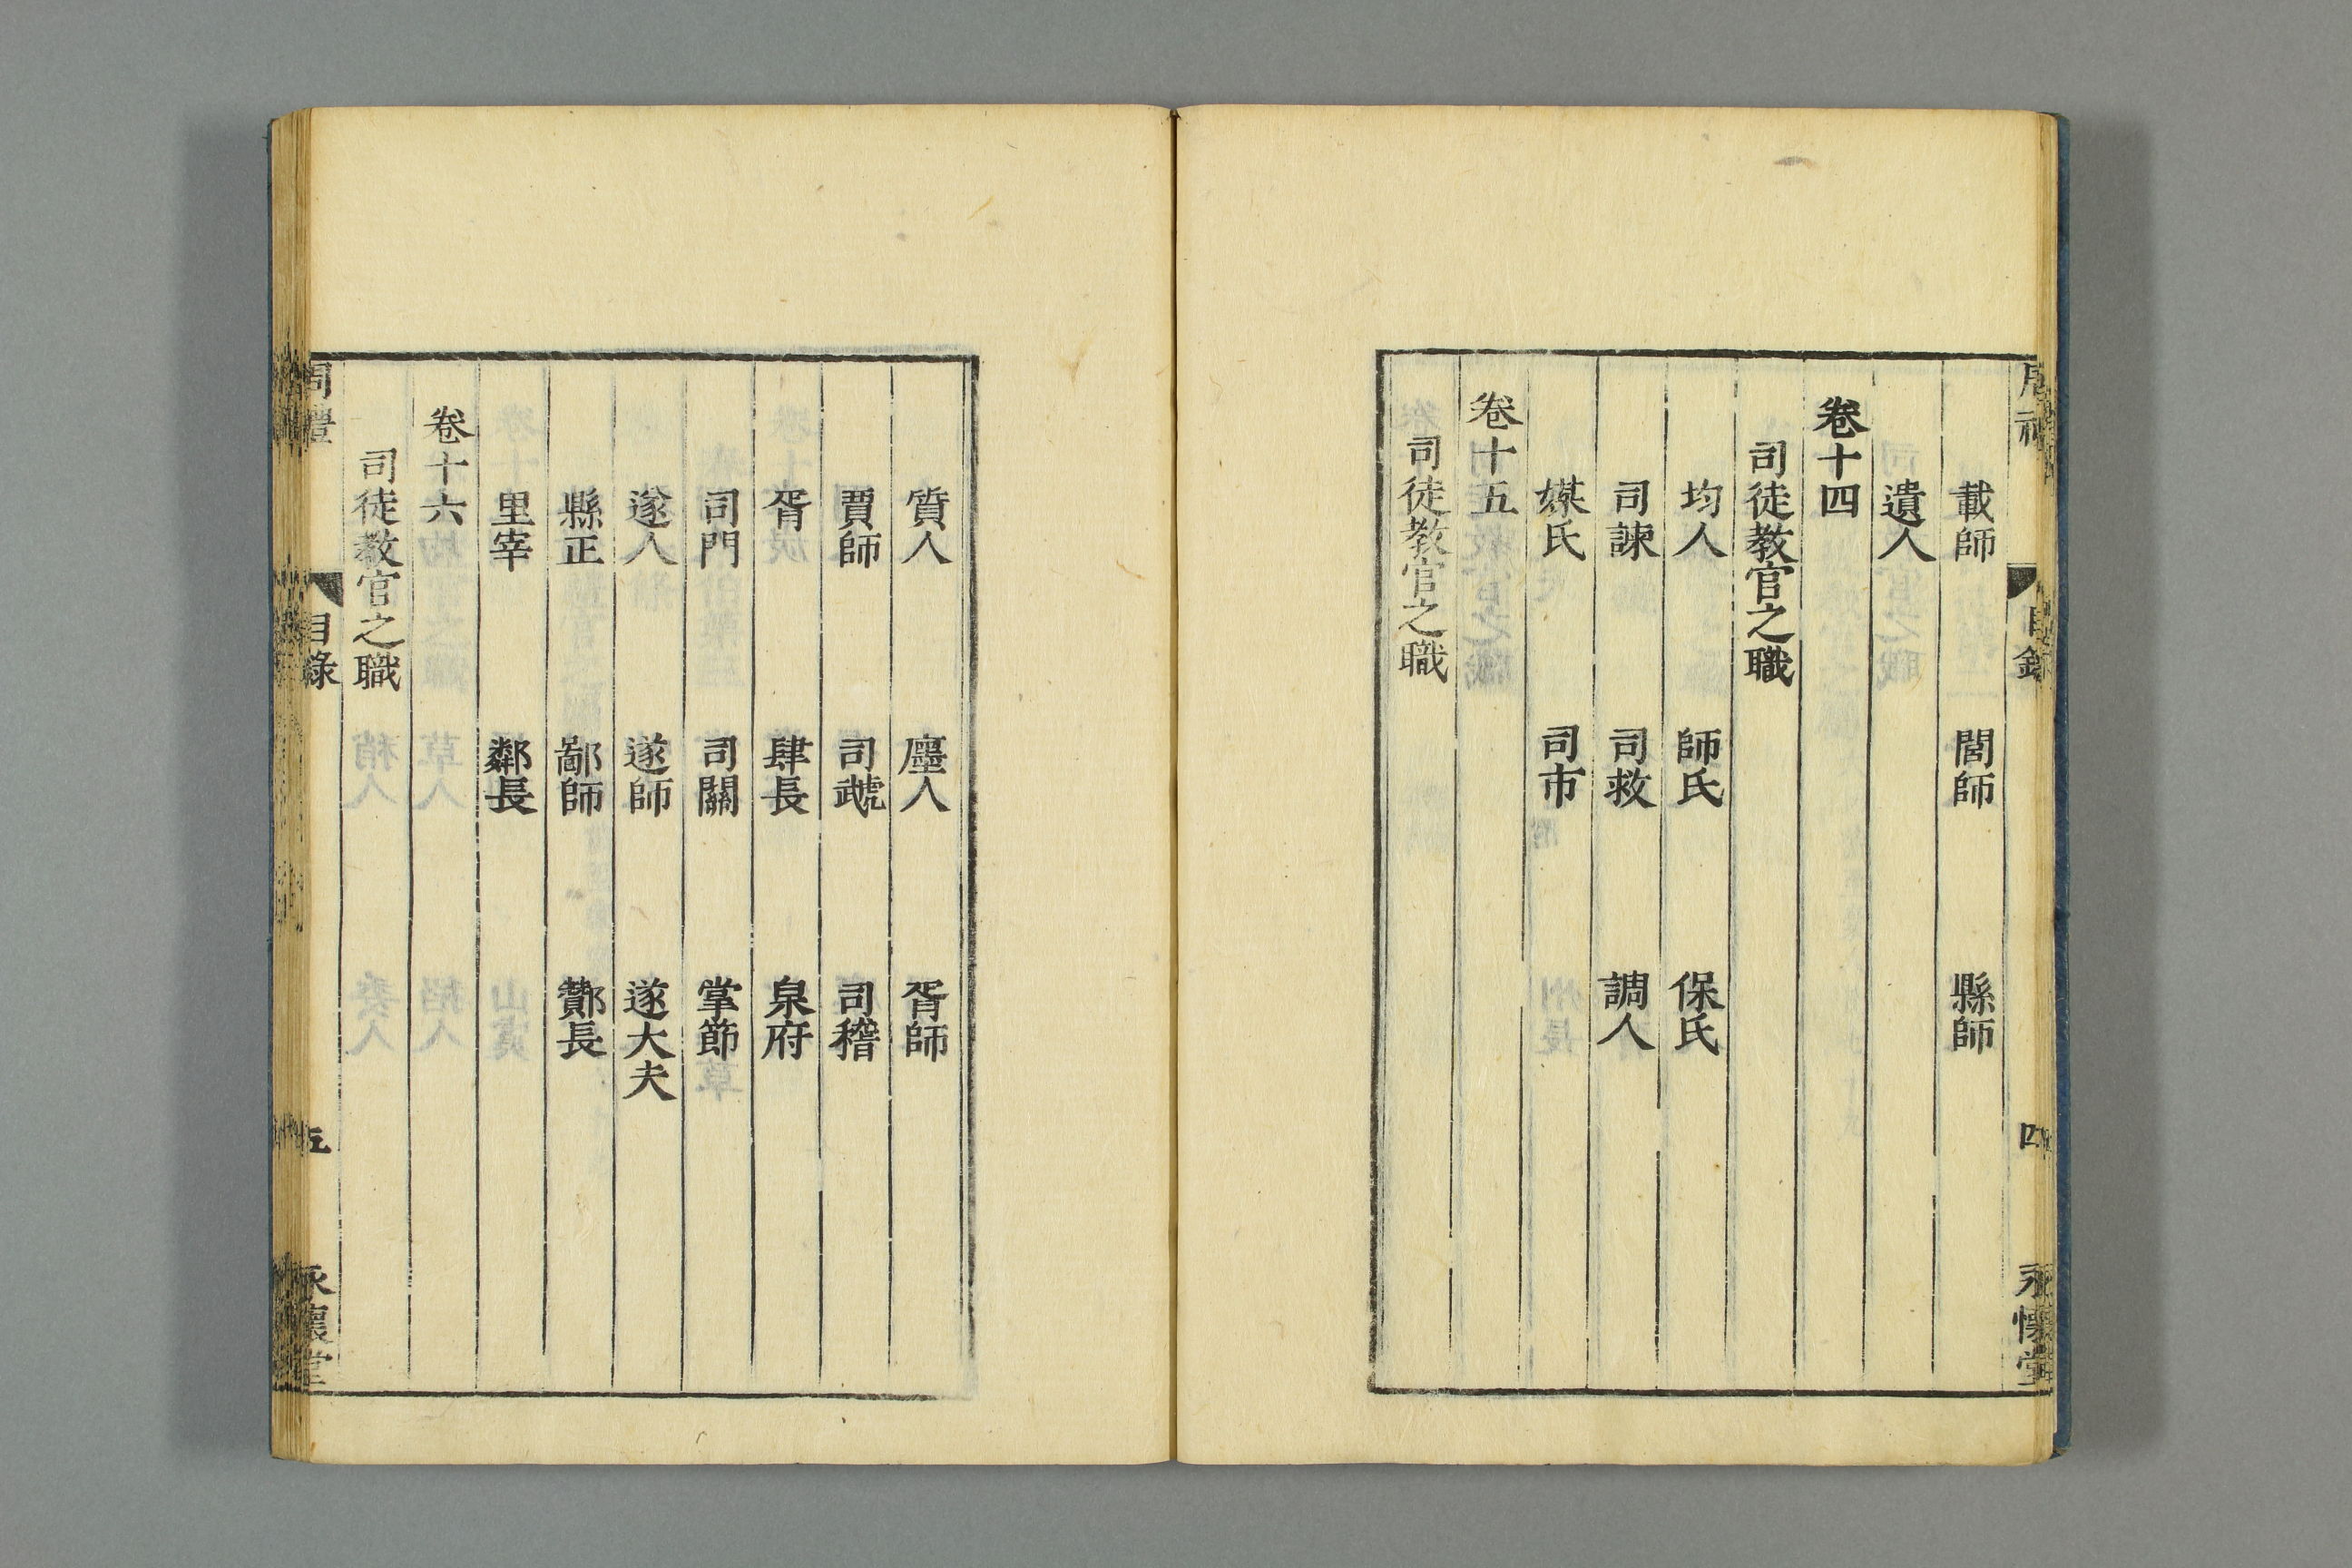 載師 閭師 縣師
遺人
卷十四
司徒教官之職
均人 師氏 保氏
司諫 司救 調人
媒氏 司市
卷十五
司徒教官之職
質人 廛人 胥師
賈師 司虣 司稽
胥 肆長 泉府
司門 司關 掌節
遂人 遂師 遂大夫
縣正 鄙師 酇長
里宰 鄰長
卷十六
司徒教官之職
周禮 目錄 五 永懷堂